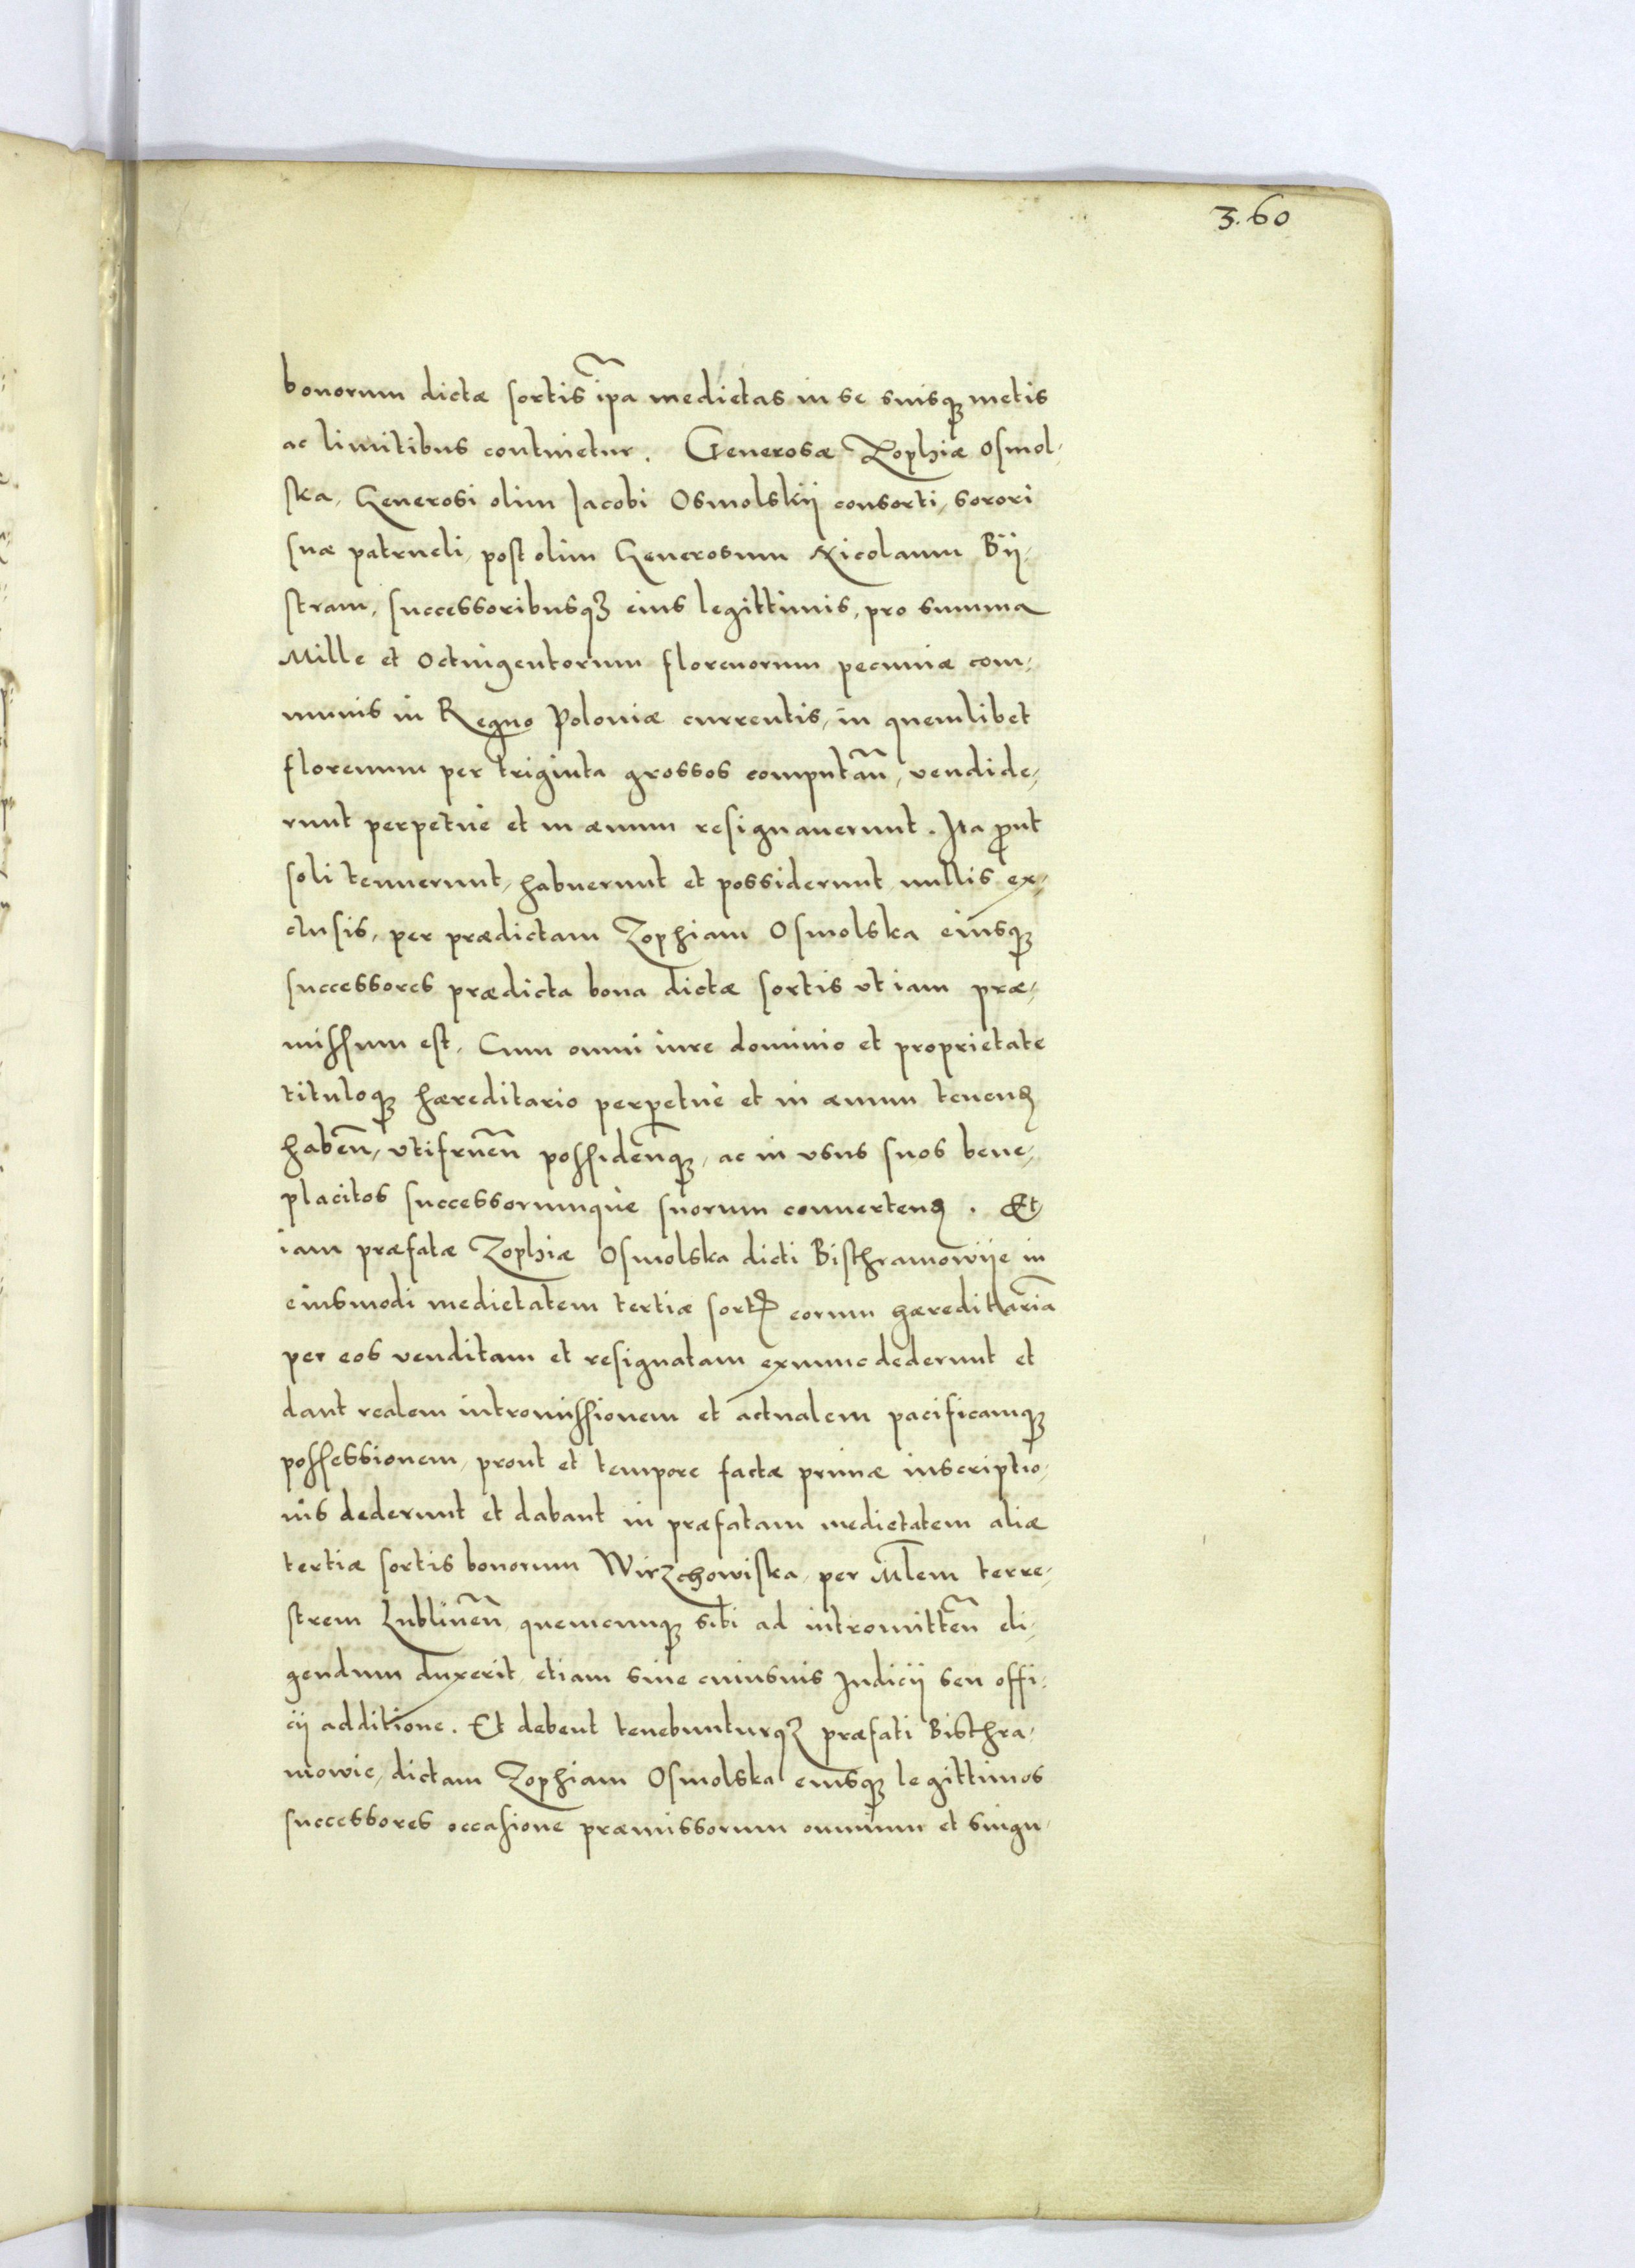 3.60
bonorum dictæ sortis ip̃a medietas in se suisq; metis
ac limitibus continetur. Generosæ Zophiæ Osmol-
ska, Generosi olim Jacobi Osmolskij consorti, sorori
suæ patrueli, post olim Generosum Nicolaum Bij-
stram, successoribusq; eius legittimis, pro summa
Mille et octingentorum florenorum pecuniæ com-
munis in Regno Poloniæ currentis, in quemlibet
florenum per triginta grossos computañ, vendide-
runt perpetuè et in æuum resignauerunt. Ita ꝓut
soli tenuerunt, habuerunt et possiderunt nullis ex-
clusis, per prædictam Zophiam Osmolska eiusq;
successores prædicta bona dictæ sortis vt iam præ-
missum est, Cum omni iure dominio et proprietate
tituloq; hæreditario perpetuè et in æuum tenend
habeñ, vtifrueñ possideñq;, ac in vsus suos bene-
placitos successorumque suorum conuertend. Et
iam præfatæ Zophiæ Osmolska dicti Bisthramowije in
eiusmodi medietatem tertiæ sortꝭ eorum hæreditariã
per eos venditam et resignatam exnunc dederunt et
dant realem intromissionem et actualem pacificamq;
possessionem, prout et tempore factæ primæ inscriptio-
nis dederunt et dabant in præfatam medietatem aliæ
tertiæ sortis bonorum Wirzchowiska, per Mlem̃ terre-
strem Lublineñ, quemcunq; sibi ad intromitteñ eli-
gendum duxerit, etiam siue cuiusuis Judicij seu offi-
cij additione. Et debent tenebunturq; præfati Bisthra-
mowie, dictam Zophiam Osmolska eiusq; legittimos
successores occasione præmissorum omnium et singu-